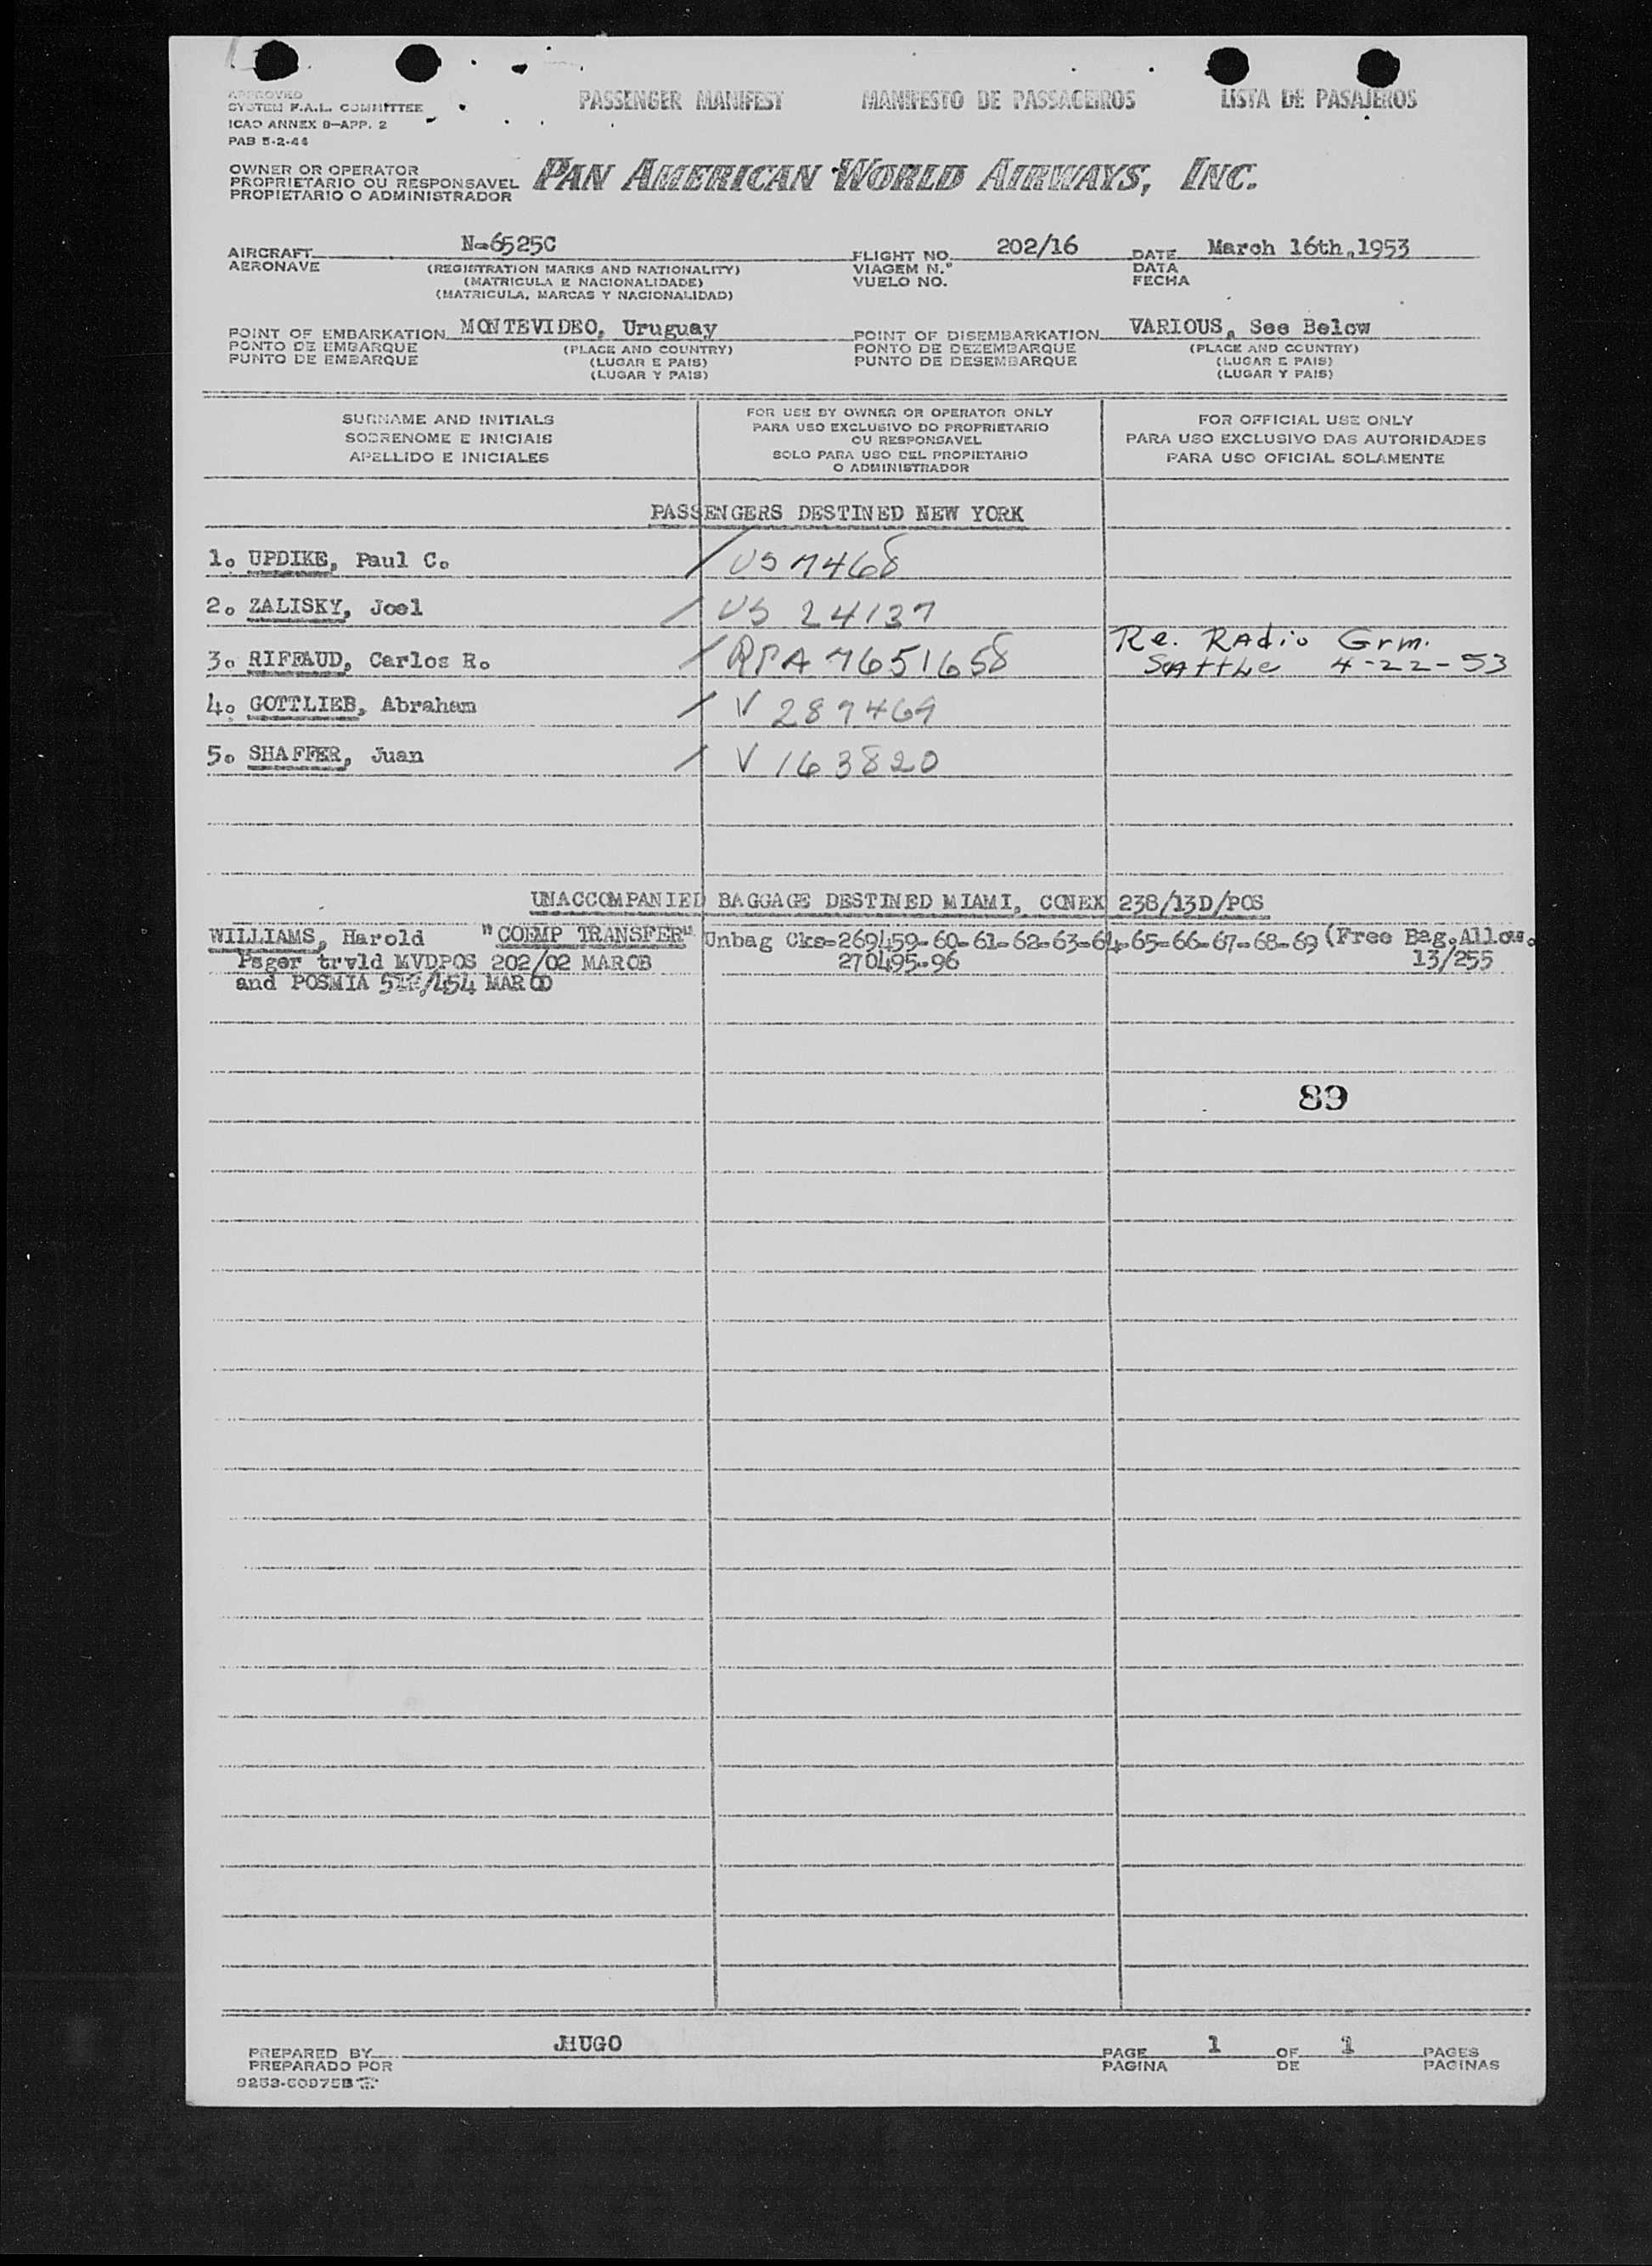 APPROVED
SYSTEM F.A.L. COMMITTEE
ICAO ANNEX 9—APP. 2
PAB 5-2-44
PASSENGER MANIFEST MANIFESTO DE PASSAGEIROS LISTA DE PASAJEROS
OWNER OR OPERATOR
PROPRIETARIO OU RESPONSAVEL
PROPIETARIO O ADMINISTRADOR
PAN AMERICAN WORLD AIRWAYS, INC.
AIRCRAFT N-6525C FLIGHT NO. 202/16 DATE March 16th,1953
AERONAVE (REGISTRATION MARKS AND NATIONALITY) VIAGEM N.º DATA
(MATRICULA E NACIONALIDADE) VUELO NO. FECHA
(MATRICULA, MARCAS Y NACIONALIDAD)
POINT OF EMBARKATION MONTEVIDEO, Uruguay POINT OF DISEMBARKATION VARIOUS, See Below
PONTO DE EMBARQUE (PLACE AND COUNTRY) PONTO DE DEZEMBARQUE (PLACE AND COUNTRY)
PUNTO DE EMBARQUE (LUGAR E PAIS) PUNTO DE DESEMBARQUE (LUGAR E PAIS)
(LUGAR Y PAIS) (LUGAR Y PAIS)
SURNAME AND INITIALS
SOBRENOME E INICIAIS
APELLIDO E INICIALES
FOR USE BY OWNER OR OPERATOR ONLY
PARA USO EXCLUSIVO DO PROPRIETARIO
OU RESPONSAVEL
SOLO PARA USO DEL PROPIETARIO
O ADMINISTRADOR
FOR OFFICIAL USE ONLY
PARA USO EXCLUSIVO DAS AUTORIDADES
PARA USO OFICIAL SOLAMENTE
PASSENGERS DESTINED NEW YORK
1. UPDIKE, Paul C. / US 7468
2. ZALISKY, Joel / US 24137
3. RIFFAUD, Carlos R. / RPA 7651658 Re. Radio Grm.
Sattle 4-22-53
4. GOTTLIEB, Abraham / V 287469
5. SHAFFER, Juan / V 163820
UNACCOMPANIED BAGGAGE DESTINED MIAMI, CONEX 238/13D/POS
WILLIAMS, Harold "COEMP TRANSFER" Unbag Cks-269459-60-61-62-63-64-65-66-67-68-69 (Free Bag.Allow.
Psger trvld MVDPOS 202/02 MAR08 270495-96 13/255
and POSMIA /454 MAR
89
PREPARED BY JHUGO PAGE 1 OF 1 PAGES
PREPARADO POR PAGINA DE PAGINAS